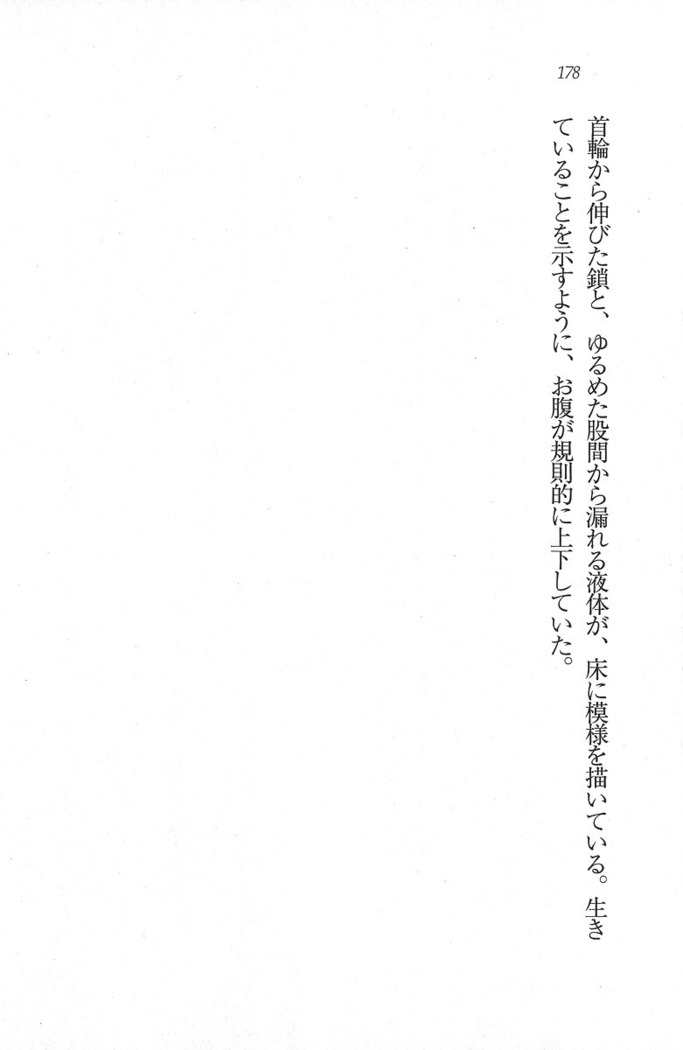 178
首輪から伸びた鎖と、ゆるめた股間から漏れる液体が、床に模様を描いている。生き
ていることを示すように、お腹が規則的に上下していた。